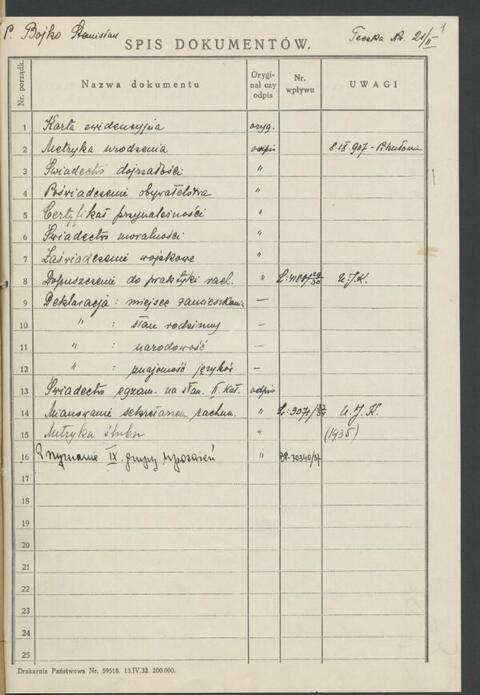 P. Bojko Stanisław
Teczka Nr. 21/II
1
SPIS DOKUMENTÓW.
Nr. porządk.
Nazwa dokumentu
Orygi-
nał czy
odpis
Nr.
wpływu
UWAGI
1 Karta ewidencyjna oryg.
2 Metryka urodzenia odpis 8 IX 907 -
3 Świadectwo dojrzałości "
4 Poświadczenie obywatelstwa "
5 Certyfikat przynależności "
6 Świadectwo moralności "
7 Zaświadczenie wojskowe "
8 Dopuszczenie do praktyki rach. " U.J.K.
9 Deklaracja : miejsce zamieszkania —
10 " : stan rodzinny —
11 " : narodowość —
12 " : znajomość języków —
13 Świadectwo egzam. na stan. II. kat. odpis
14 Mianowanie sekretarzem rachun. " L: 3071/33 U.J.K.
15 Metryka ślubu " (1935)
16 Przyznanie IX. grupy uposażeń " 30340/37
17
18
19
20
21
22
23
24
25
Drukarnia Państwowa Nr. 59518. 13.IV.32. 200.000.